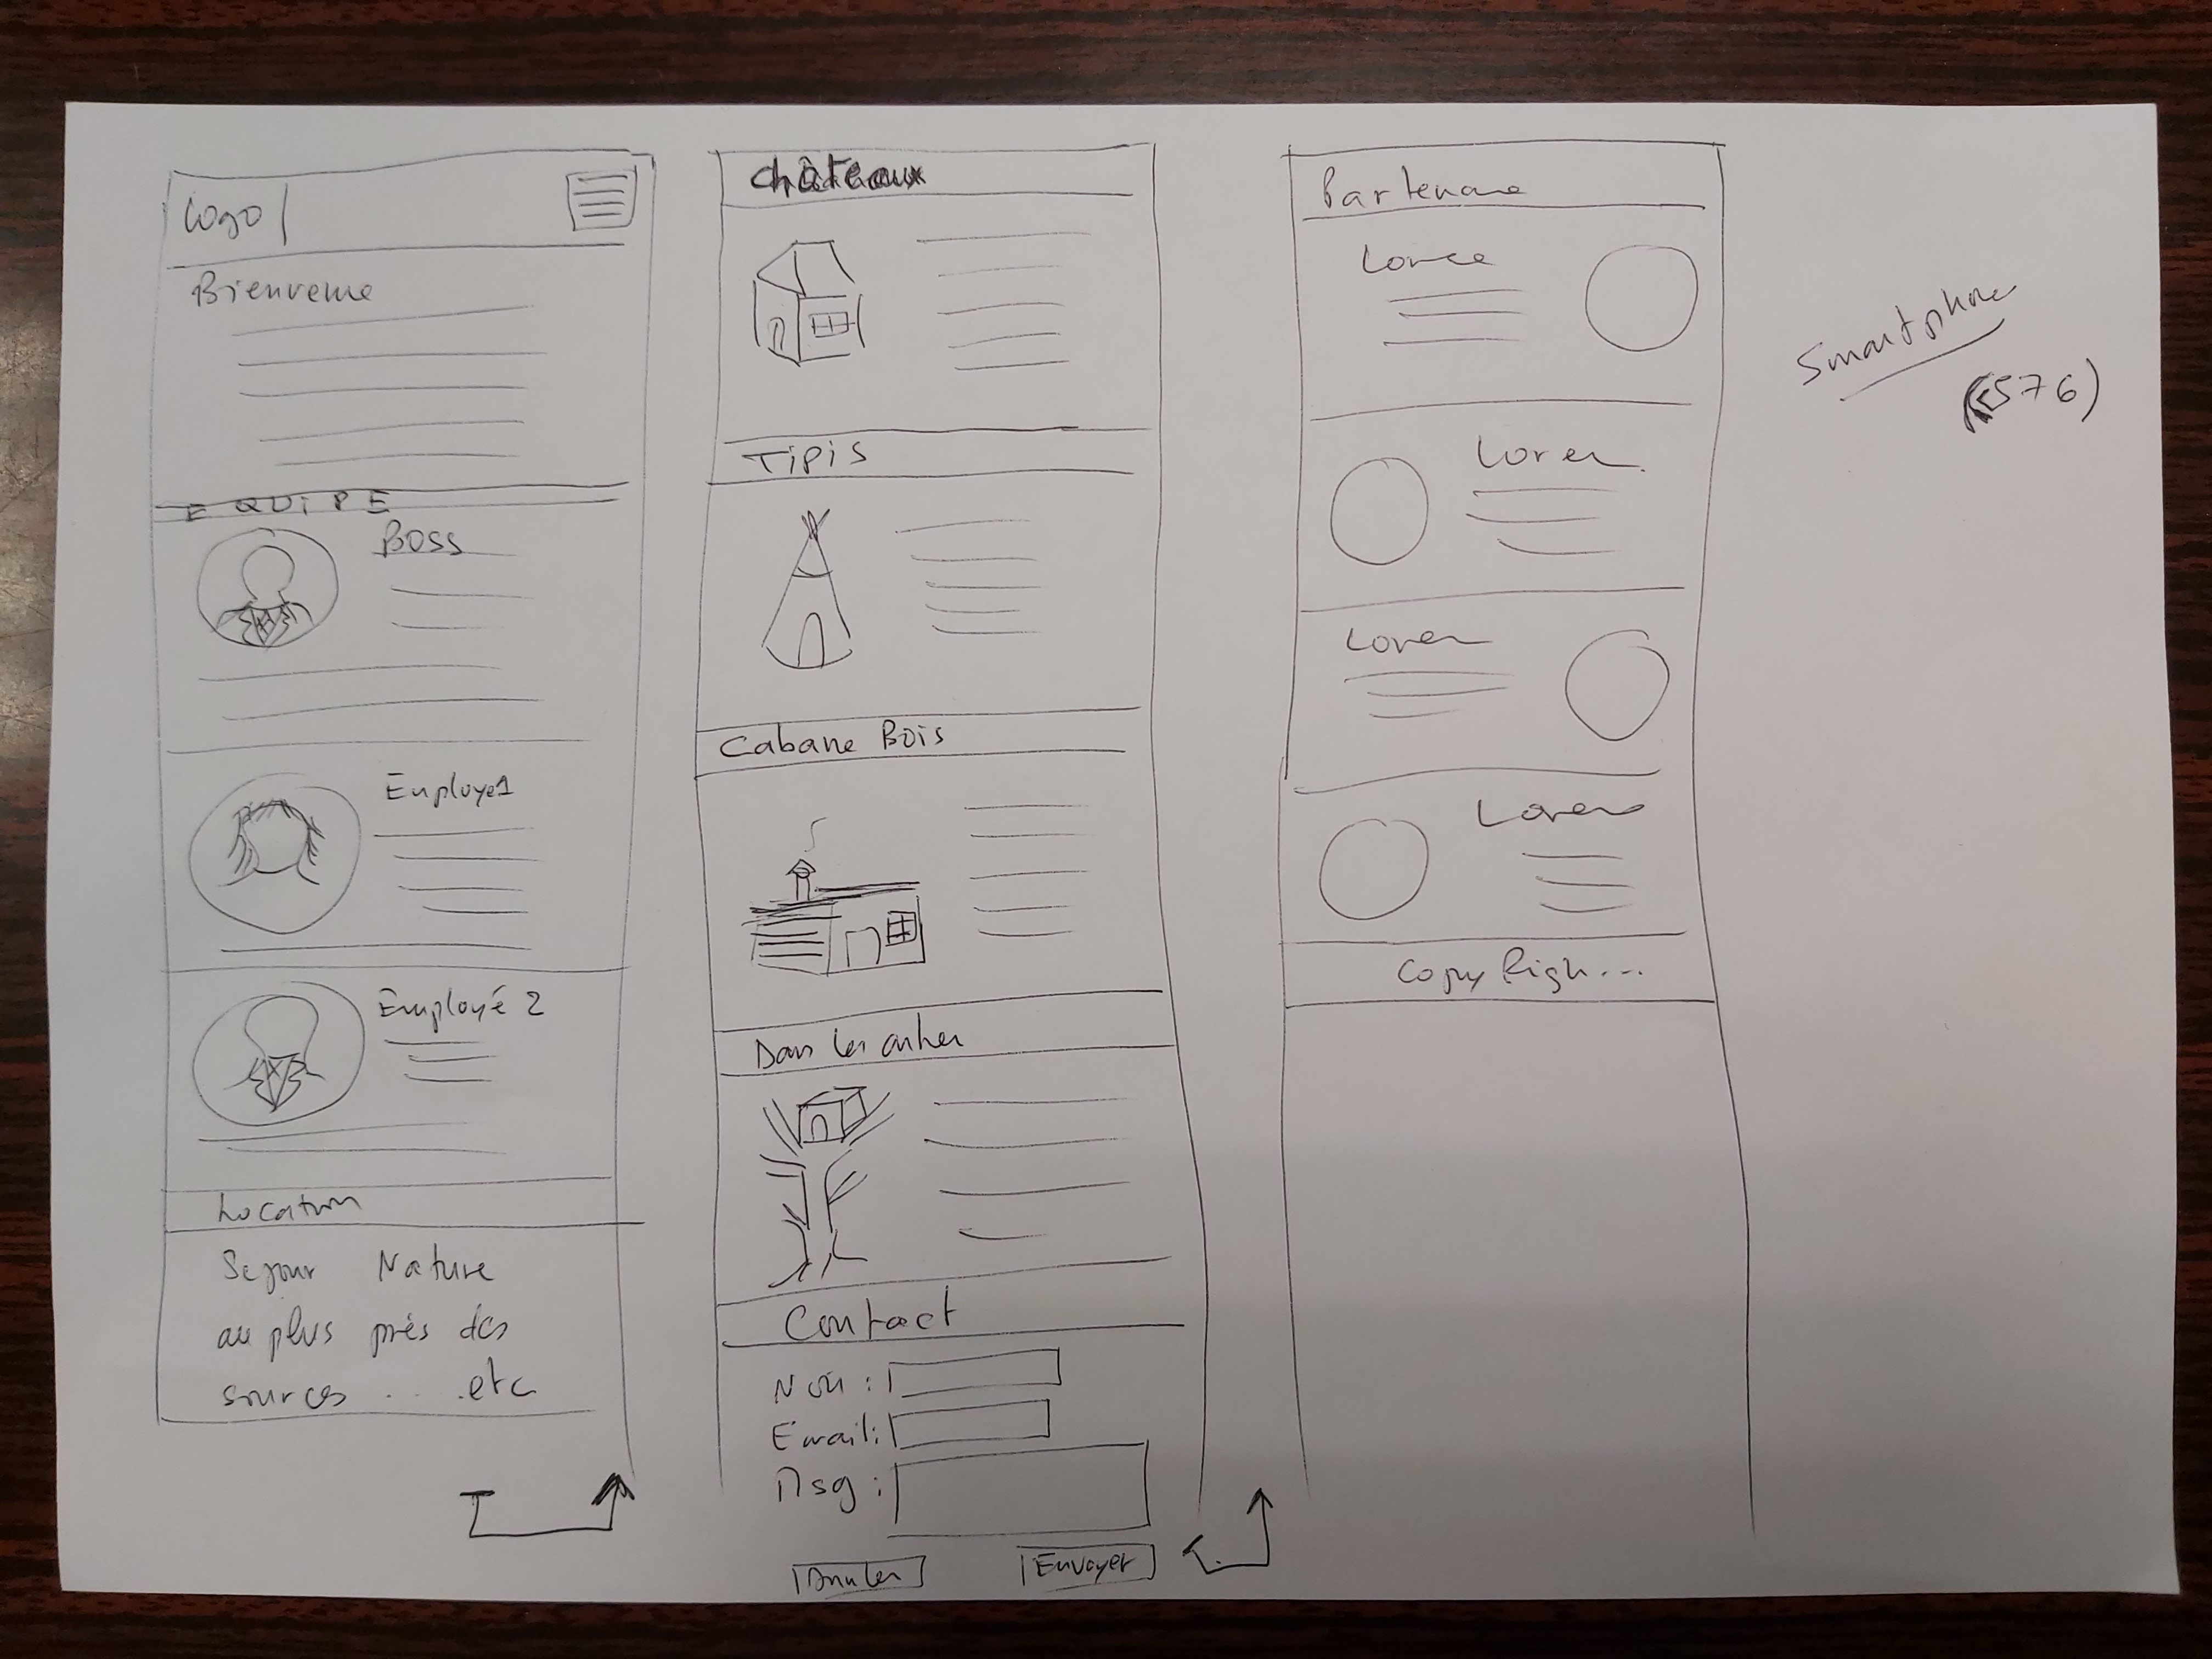 Logo
Bienvenue
EQUIPE
Boss
Employe1
Employé 2
Location
Sejour Nature
au plus près des
sources . . . . etc
châteaux
Tipis
Cabane Bois
Dans les arbres
Contact
Nom :
Email:
Msg :
Annuler
Envoyer
Partenaire
Lorem
Lorem
Lorem
Lorem
Copy Righ...
Smartphone
(<576)